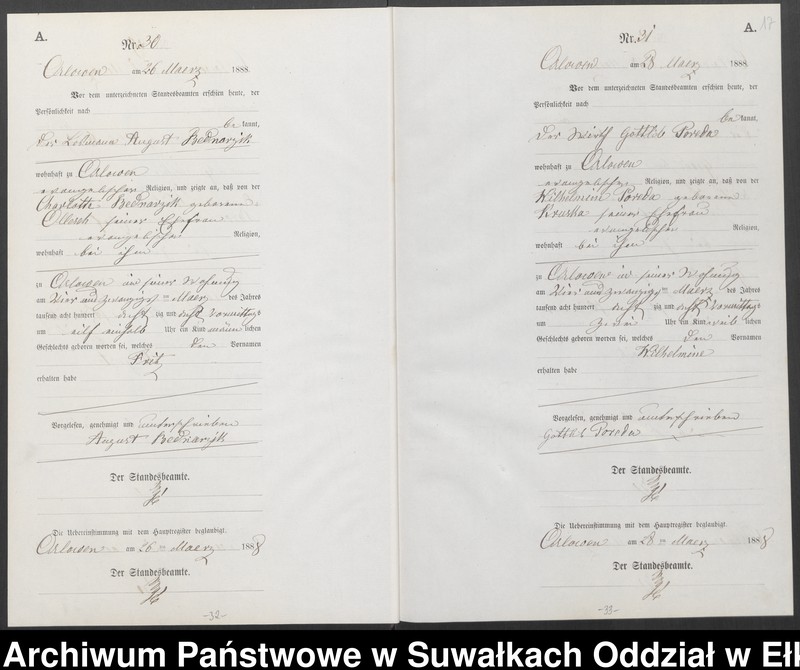 A.
Nr. 30
Orlowen am 26 Maerz 1888.
Vor dem unterzeichneten Standesbeamten erschien heute, der
Persönlichkeit nach
be kannt,
August Bednarzik
wohnhaft zu Orlowen
evangelischer Religion, und zeigte an, daß von der
Charlotte Bednarzik geborenen
seiner Ehefrau
evangelischer Religion,
wohnhaft bei ihm
zu Orlowen in seiner Wohnung
am Vier und zwanzigsten Maerz des Jahres
tausend acht hundert acht zig und acht Vormittags
um eilf einhalb Uhr ein Kind männ lichen
Geschlechts geboren worden sei, welches den Vornamen
Fritz
erhalten habe
Vorgelesen, genehmigt und unterschrieben
August Bednarzik
Der Standesbeamte.
Die Uebereinstimmung mit dem Hauptregister beglaubigt.
Orlowen am 26 ten Maerz 1888
Der Standesbeamte.
-32-
A. 17
Nr. 31
Orlowen am 28 Maerz 1888.
Vor dem unterzeichneten Standesbeamten erschien heute, der
Persönlichkeit nach
be kannt,
der Wirth Gottlieb Poreda
wohnhaft zu Orlowen
evangelischer Religion, und zeigte an, daß von der
Wilhelmine Poreda geborenen
Kruska seiner Ehefrau
evangelischer Religion,
wohnhaft bei ihm
zu Orlowen in seiner Wohnung
am Vier und zwanzigsten Maerz des Jahres
tausend acht hundert acht zig und acht Vormittags
um zwei Uhr ein Kind weib lichen
Geschlechts geboren worden sei, welches den Vornamen
Wilhelmine
erhalten habe
Vorgelesen, genehmigt und unterschrieben
Gottlieb Poreda
Der Standesbeamte.
Die Uebereinstimmung mit dem Hauptregister beglaubigt.
Orlowen am 28 ten Maerz 1888
Der Standesbeamte.
-33-
Archiwum Państwowe w Suwałkach Oddział w Eł